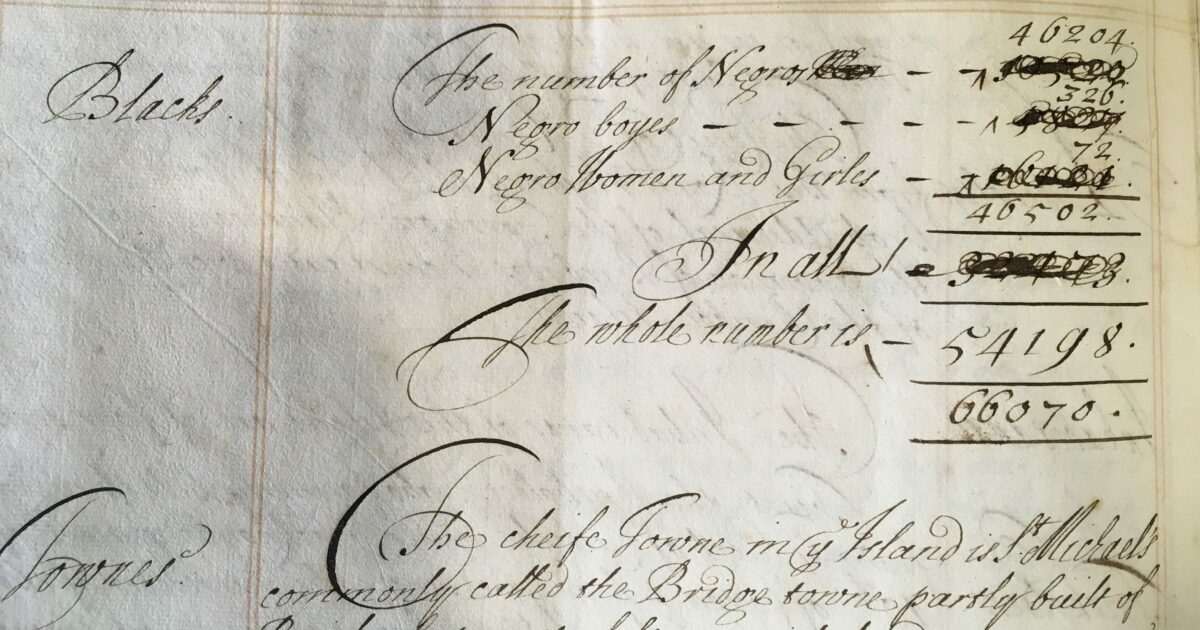 46204.
Blacks. The number of Negros - -
326.
Negro boyes - - - - - -
72.
Negro Women and Girles -
46502.
In all
The whole number is - 54198.
66070.
Townes. The cheife Towne in ye Island is St. Michael's
commonly called the Bridge towne partly built of